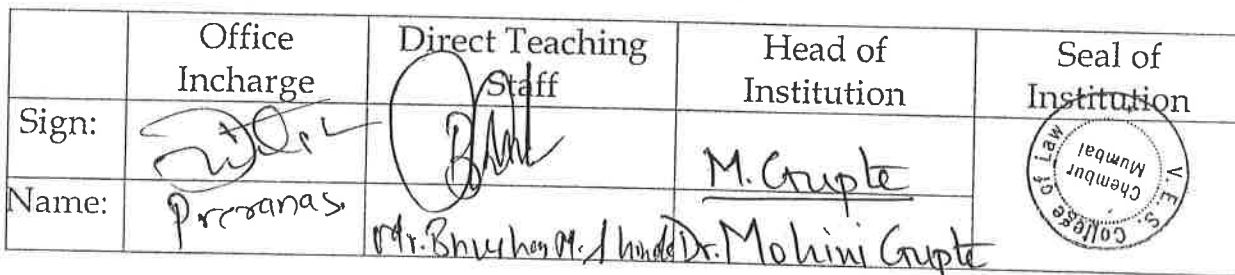 Office Incharge
Direct Teaching Staff
Head of Institution
Seal of Institution
Sign:
M. Gupte
V. E. S. College of Law
Chembur
Mumbai
Name:
Preranas.
Mr. Bhushan M. Shinde
Dr. Mohini Gupte